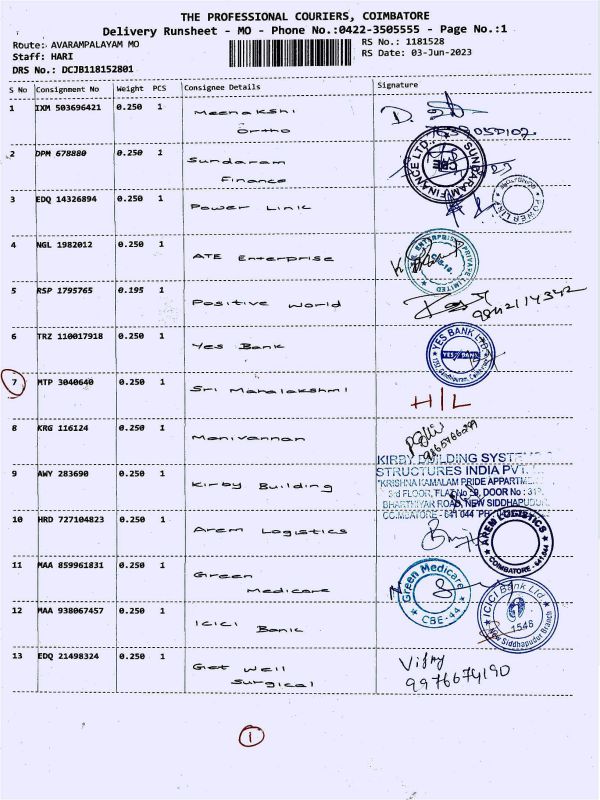 THE PROFESSIONAL COURIERS, COIMBATORE
Delivery Runsheet - MO - Phone No.:0422-3505555 - Page No.:1
Route: AVARAMPALAYAM MO
Staff: HARI
DRS No.: DCJB118152801
RS No.: 1181528
RS Date: 03-Jun-2023
S No Consignment No Weight PCS Consignee Details Signature
1 IXM 503696421 0.250 1 Meenakshi
Ortho
2 DPM 678880 0.250 1 Sundaram
Finance
SUNDARAM FINANCE LTD.
CBE
3 EDQ 14326894 0.250 1 Power Link
POWER LINK
4 NGL 1982012 0.250 1 ATE Enterprise
ENTERPRISES PRIVATE LIMITED
5 RSP 1795765 0.195 1 Positive World
6 TRZ 110017918 0.250 1 Yes Bank
YES BANK LTD
YES BANK
7 MTP 3040640 0.250 1 Sri Mahalakshmi H/L
8 KRG 116124 0.250 1 Manivannan
9 AWY 283690 0.250 1 Kirby Building
KIRBY BUILDING SYSTEMS
STRUCTURES INDIA PVT.
"KRISHNA KAMALAM PRIDE APPARTMENT
3rd FLOOR, FLAT No DOOR No : 
BHARTHIYAR ROAD, NEW SIDDHAPUDUR,
COIMBATORE - 641 044 PH.
10 HRD 727104823 0.250 1 Arem Logistics
AREM LOGISTICS
COIMBATORE - 641 044
11 MAA 859961831 0.250 1 Green
Medicare
Green Medicare
CBE-44
12 MAA 938067457 0.250 1 ICICI
Bank
ICICI Bank Ltd
1548
New Siddhapudur Branch
13 EDQ 21498324 0.250 1 Get Well
Surgical
Vijay
9976674190
1